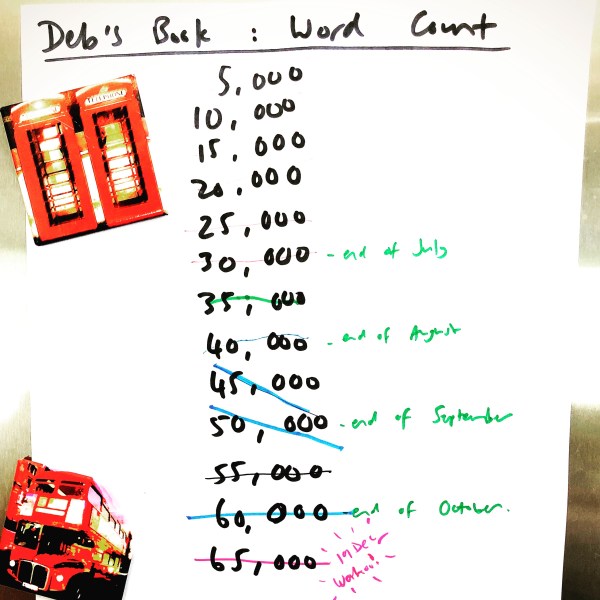 Deb's Book : Word Count
TELEPHONE
5,000
10,000
15,000
20,000
25,000
30,000 - end of July
35,000
40,000 - end of August
45,000
50,000 - end of September
55,000
60,000 - end of October.
65,000 19 Dec
Woohoo!